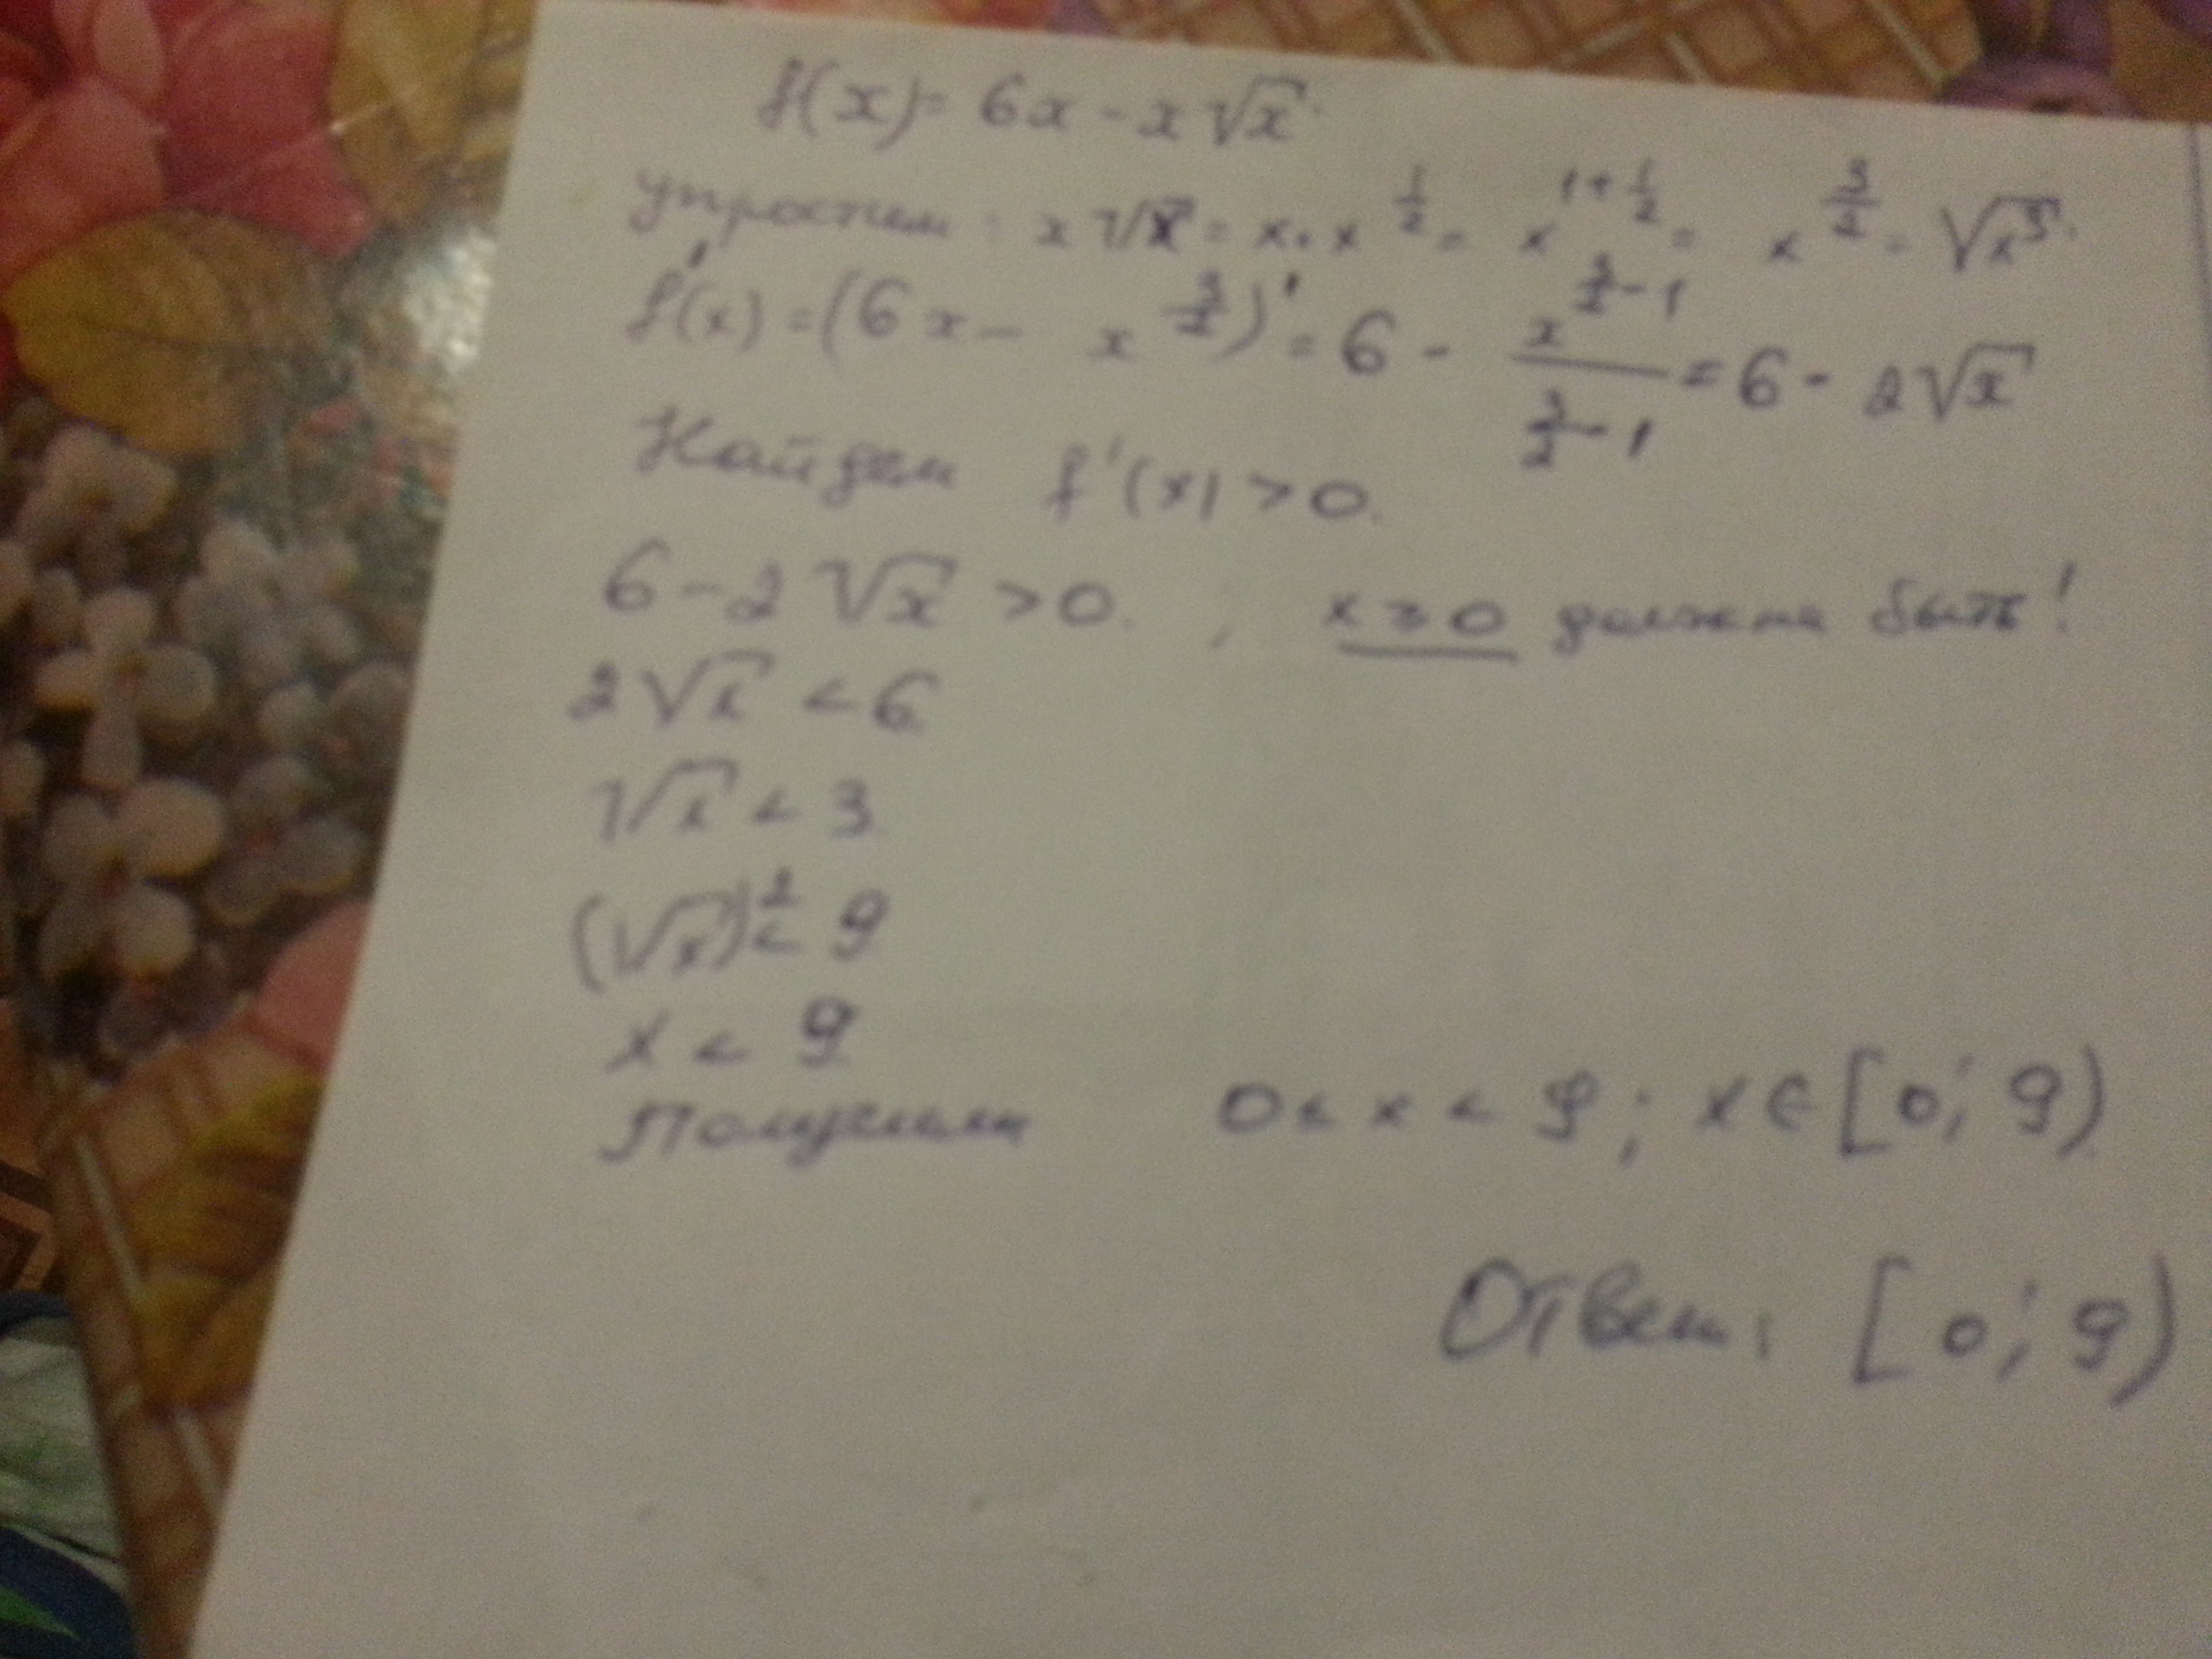 f(x) = 6x - x√x.
упростим: x√x = x·x^(1/2) = x^(1+1/2) = x^(3/2) = √x³.
f'(x) = (6x - x^(3/2))' = 6 - x^(3/2-1)/(3/2-1) = 6 - 2√x
Найдем f'(x) > 0.
6 - 2√x > 0. ; x ≥ 0 должно быть!
2√x < 6
√x < 3
(√x)² < 9
x < 9
Получили 0 < x < 9; x ∈ [0; 9)
Ответ: [0; 9)